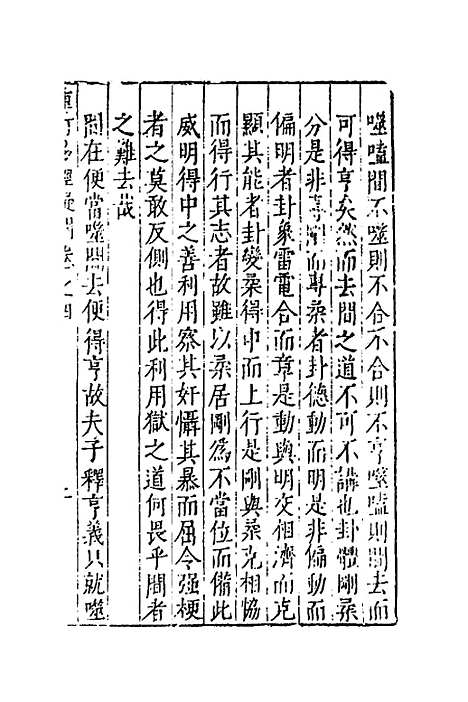 噬嗑間不噬則不合不合則不亨噬嗑則間去而
可得亨矣然而去間之道不可不講也卦體剛柔
分是非專剛而專柔者卦德動而明是非偏動而
偏明者卦象雷電合而章是動與明交相濟而克
顯其能者卦變柔得中而上行是剛與柔克相恊
而得行其志者故雖以柔居剛為不當位而備此
威明得中之善利用察其奸懾其暴而屈令强梗
者之莫敢反側也得此利用獄之道何畏乎間者
之難去哉
間在便當噬間去便得亨故夫子釋亨義只就噬
重訂易經疑問卷之四